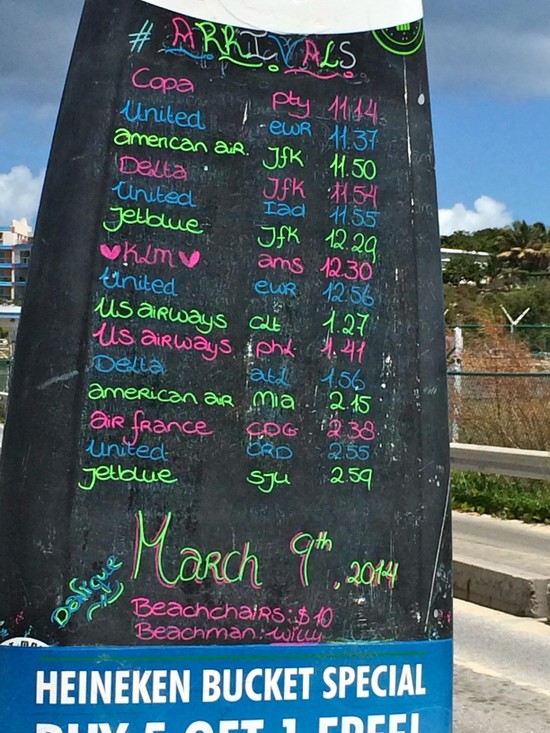 # ARRIVALS
Copa pty 11.14
United ewr 11.37
american air. Jfk 11.50
Delta Jfk 11.54
United Iad 11.55
Jetblue Jfk 12.29
KLM ams 12.30
United ewr 12.56
US airways clt 1.27
US airways phl 1.41
Delta atl 1.56
american air mia 2.15
air france CDG 2.38
United ORD 2.55
Jetblue sju 2.59
March 9th, 2014
Beachchairs: $10
Beachman: Willy
HEINEKEN BUCKET SPECIAL
BUY 5 GET 1 FREE!